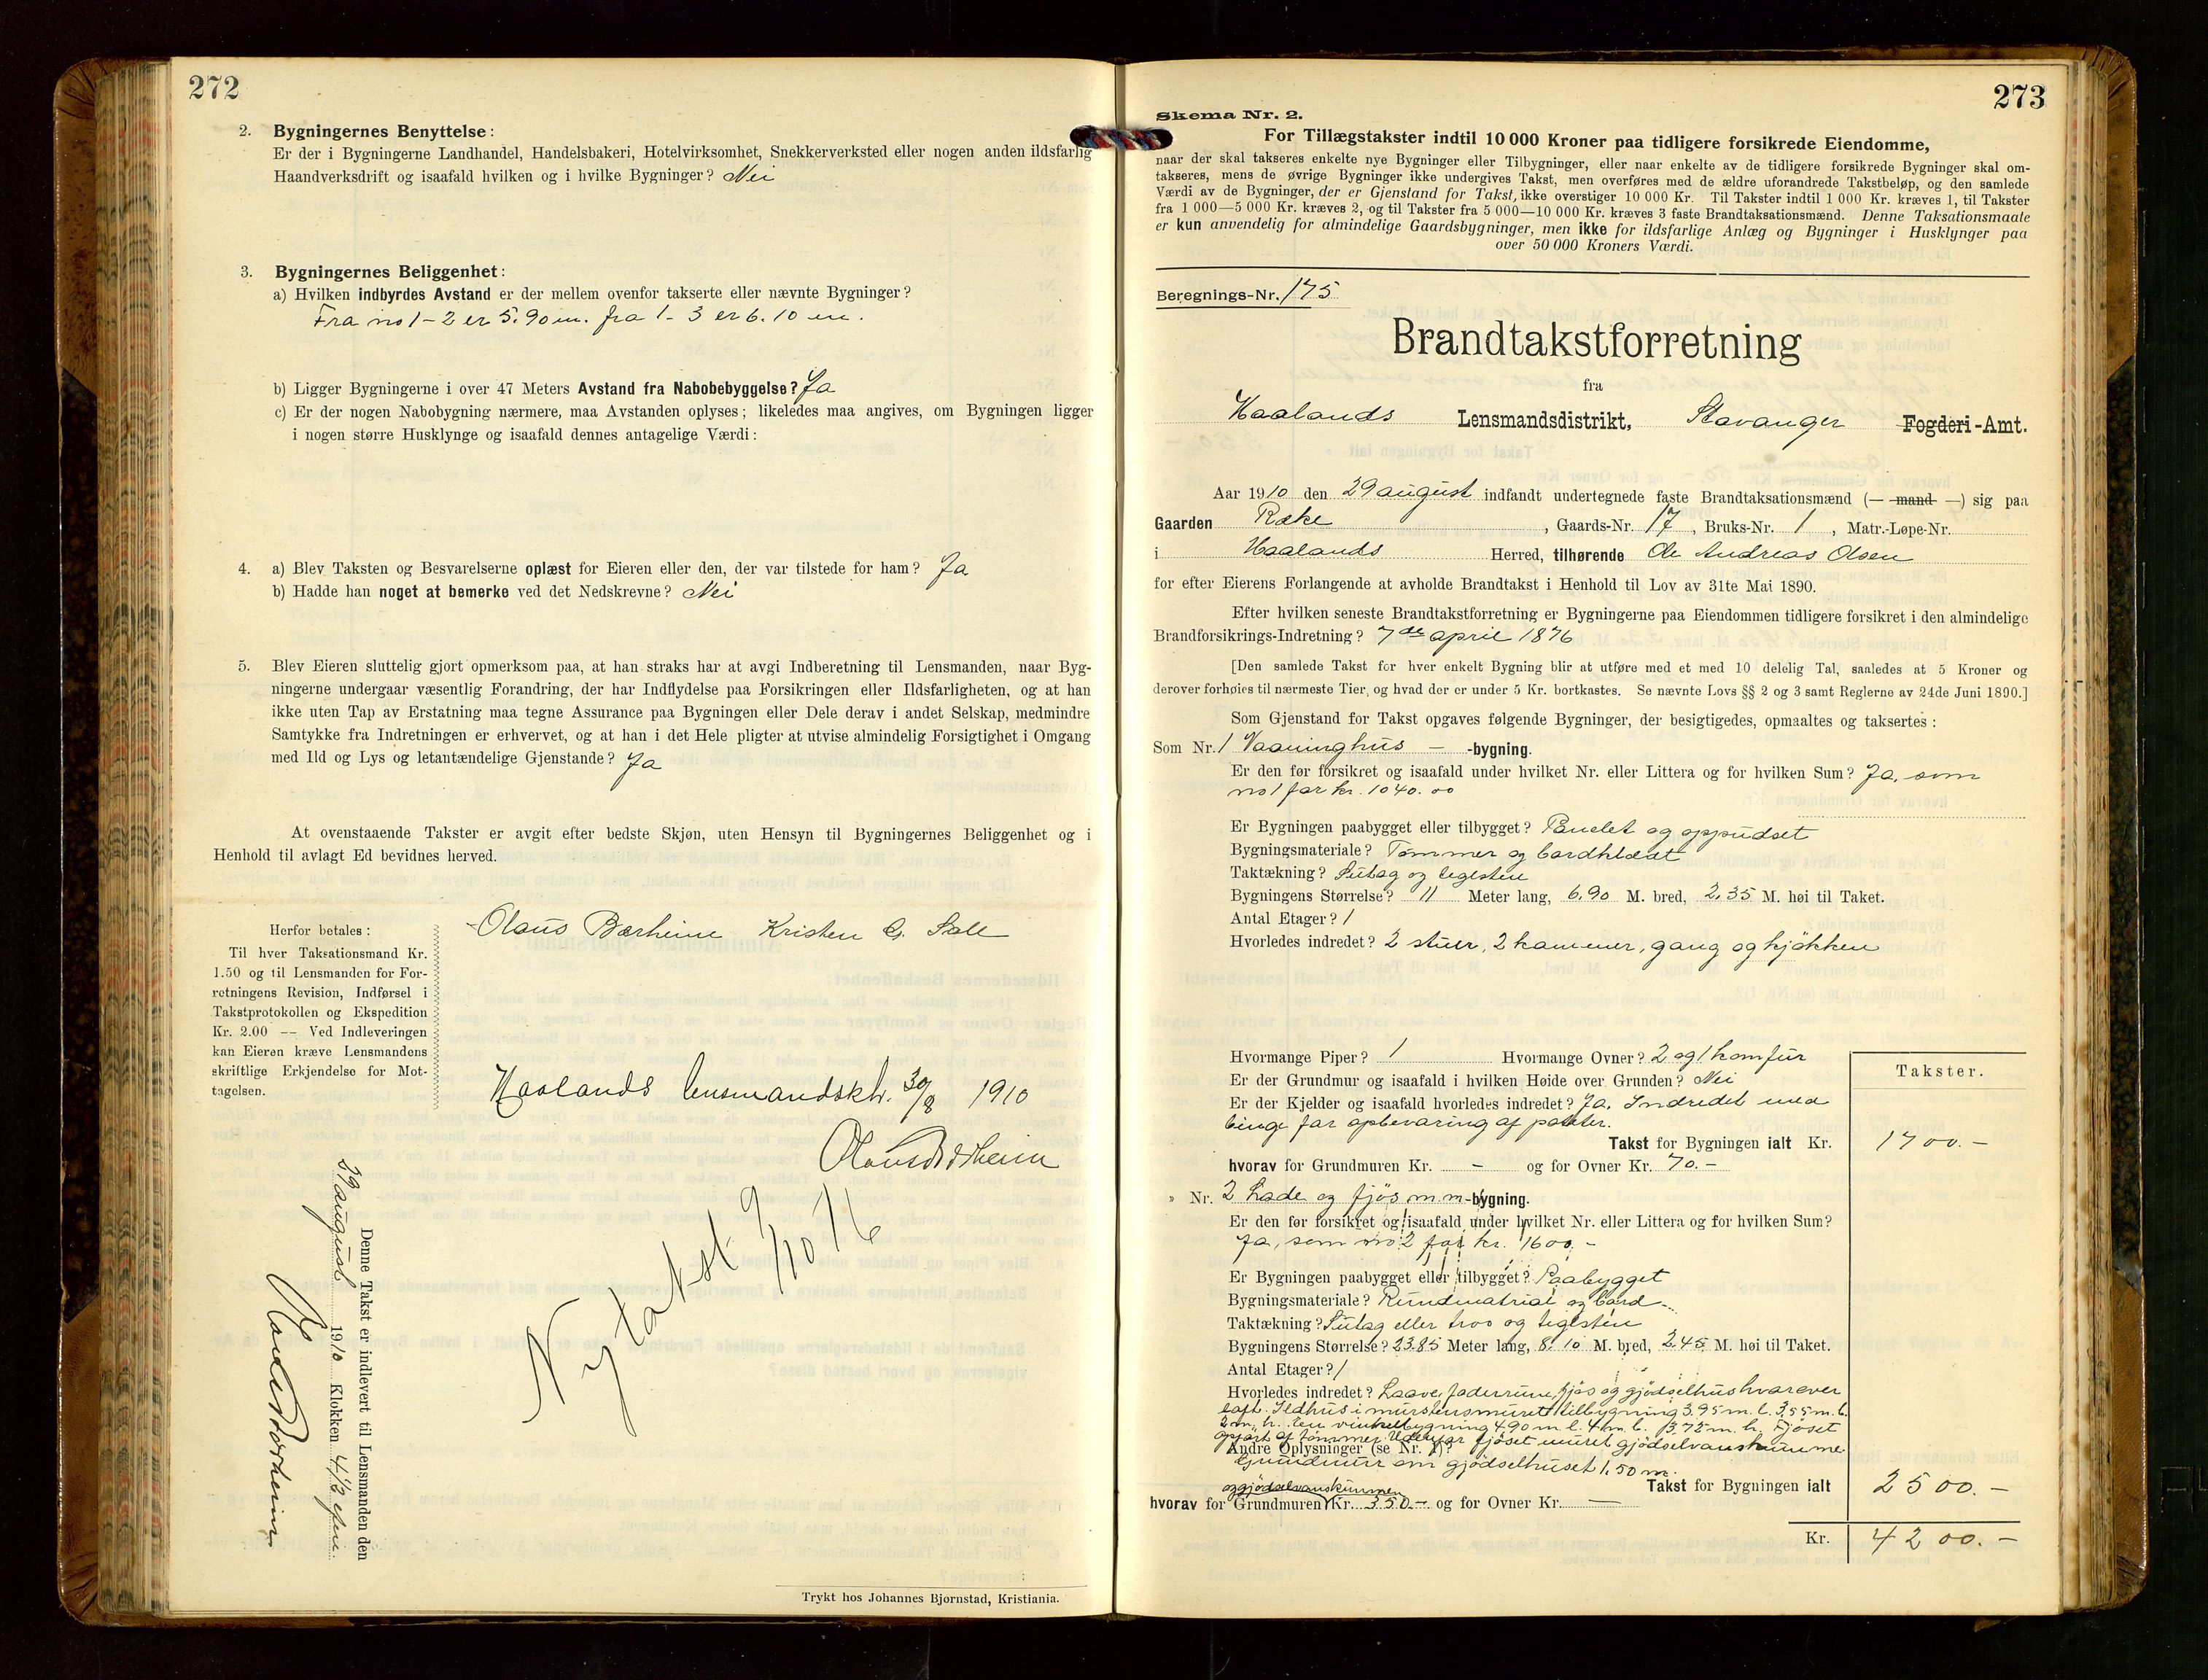 272
2. Bygningernes Benyttelse:
Er der i Bygningerne Landhandel, Handelsbakeri, Hotelvirksomhet, Snekkerverksted eller nogen anden ildsfarlig
Haandverksdrift og isaafald hvilken og i hvilke Bygninger? Nei
3. Bygningernes Beliggenhet:
a) Hvilken indbyrdes Avstand er der mellem ovenfor takserte eller nævnte Bygninger?
Fra no 1-2 er 5.90 m. fra 1-3 er 6.10 m.
b) Ligger Bygningerne i over 47 Meters Avstand fra Nabobebyggelse? Ja
c) Er der nogen Nabobygning nærmere, maa Avstanden oplyses; likeledes maa angives, om Bygningen ligger
i nogen større Husklynge og isaafald dennes antagelige Værdi:
4. a) Blev Taksten og Besvarelserne oplæst for Eieren eller den, der var tilstede for ham? Ja
b) Hadde han noget at bemerke ved det Nedskrevne? Nei
5. Blev Eieren sluttelig gjort opmerksom paa, at han straks har at avgi Indberetning til Lensmanden, naar Byg-
ningerne undergaar væsentlig Forandring, der har Indflydelse paa Forsikringen eller Ildsfarligheten, og at han
ikke uten Tap av Erstatning maa tegne Assurance paa Bygningen eller Dele derav i andet Selskap, medmindre
Samtykke fra Indretningen er erhvervet, og at han i det Hele pligter at utvise almindelig Forsigtighet i Omgang
med Ild og Lys og letantændelige Gjenstande? Ja
At ovenstaaende Takster er avgit efter bedste Skjøn, uten Hensyn til Bygningernes Beliggenhet og i
Henhold til avlagt Ed bevidnes herved.
Olaus Bærheim Kristen G. Salle
Herfor betales:
Til hver Taksationsmand Kr.
1.50 og til Lensmanden for For-
retningens Revision, Indførsel i
Takstprotokollen og Ekspedition
Kr. 2.00 — Ved Indleveringen
kan Eieren kræve Lensmandens
skriftlige Erkjendelse for Mot-
tagelsen.
Haalands lensmandsktr. 30/8 1910
Ny takst 9/10 16
Denne Takst er indlevert til Lensmanden den
29 august 1910 Klokken 4 1/2 efm.
Trykt hos Johannes Bjørnstad, Kristiania.
273
Skema Nr. 2.
For Tillægstakster indtil 10 000 Kroner paa tidligere forsikrede Eiendomme,
naar der skal takseres enkelte nye Bygninger eller Tilbygninger, eller naar enkelte av de tidligere forsikrede Bygninger skal om-
takseres, mens de øvrige Bygninger ikke undergives Takst, men overføres med de ældre uforandrede Takstbeløp, og den samlede
Værdi av de Bygninger, der er Gjenstand for Takst, ikke overstiger 10 000 Kr. Til Takster indtil 1 000 Kr. kræves 1, til Takster
fra 1 000—5 000 Kr. kræves 2, og til Takster fra 5 000—10 000 Kr. kræves 3 faste Brandtaksationsmænd. Denne Taksationsmaate
er kun anvendelig for almindelige Gaardsbygninger, men ikke for ildsfarlige Anlæg og Bygninger i Husklynger paa
over 50 000 Kroners Værdi.
Beregnings-Nr. 175
Brandtakstforretning
fra
Haalands Lensmandsdistrikt, Stavanger Fogderi-Amt.
Aar 1910 den 29 august indfandt undertegnede faste Brandtaksationsmænd (— mand —) sig paa
Gaarden Røke, Gaards-Nr. 17, Bruks-Nr. 1, Matr.-Løpe-Nr.
i Haalands Herred, tilhørende Ole Andreas Olsen
for efter Eierens Forlangende at avholde Brandtakst i Henhold til Lov av 31te Mai 1890.
Efter hvilken seneste Brandtakstforretning er Bygningerne paa Eiendommen tidligere forsikret i den almindelige
Brandforsikrings-Indretning? 7de april 1876
[Den samlede Takst for hver enkelt Bygning blir at utføre med et med 10 delelig Tal, saaledes at 5 Kroner og
derover forhøies til nærmeste Tier, og hvad der er under 5 Kr. bortkastes. Se nævnte Lovs §§ 2 og 3 samt Reglerne av 24de Juni 1890.]
Som Gjenstand for Takst opgaves følgende Bygninger, der besigtigedes, opmaaltes og taksertes:
Som Nr. 1 Vaaninghus — -bygning.
Er den før forsikret og isaafald under hvilket Nr. eller Littera og for hvilken Sum? Ja, som
no 1 for kr. 1040.00
Er Bygningen paabygget eller tilbygget? Panelet og oppudset
Bygningsmateriale? Tømmer og bordklædt
Taktækning? Sutag og teglsten
Bygningens Størrelse? 11 Meter lang, 6.90 M. bred, 2.35 M. høi til Taket.
Antal Etager? 1
Hvorledes indredet? 2 stuer, 2 kammer, gang og kjøkken
Hvormange Piper? 1 Hvormange Ovner? 2 og 1 komfur
Er der Grundmur og isaafald i hvilken Høide over Grunden? Nei
Er der Kjelder og isaafald hvorledes indredet? Ja. Indredet med
binge for opbevaring af poteter.
Takster.
Takst for Bygningen ialt Kr. 1700.-
hvorav for Grundmuren Kr. - og for Ovner Kr. 70.-
" Nr. 2 Lade og fjøs m.m -bygning.
Er den før forsikret og isaafald under hvilket Nr. eller Littera og for hvilken Sum?
Ja, som no 2 for kr. 1600.-
Er Bygningen paabygget eller tilbygget? Paabygget
Bygningsmateriale? Rundmatrial og bord
Taktækning? Sutag eller tro og teglsten
Bygningens Størrelse? 23.85 Meter lang, 8.10 M. bred, 2.45 M. høi til Taket.
Antal Etager? 1
Hvorledes indredet? Laave, foderrum, fjøs og gjødselhus hvorover
loft. Ildhus i murstensmuret tilbygning 3.95 m. l. 3.55 m. b.
2 m. h. En vinkelbygning 4.90 m l. 4 m b. 3.75 m. h. Fjøset
opført af tømmer. Udenfor fjøset muret gjødselvandskumme
Andre Oplysninger (se Nr. 1)?
Grundmur om gjødselhuset 1.50 m.
Takst for Bygningen ialt 2500.-
og gjødselvandskummen
hvorav for Grundmuren Kr. 350.- og for Ovner Kr. —
Kr. 4200.-